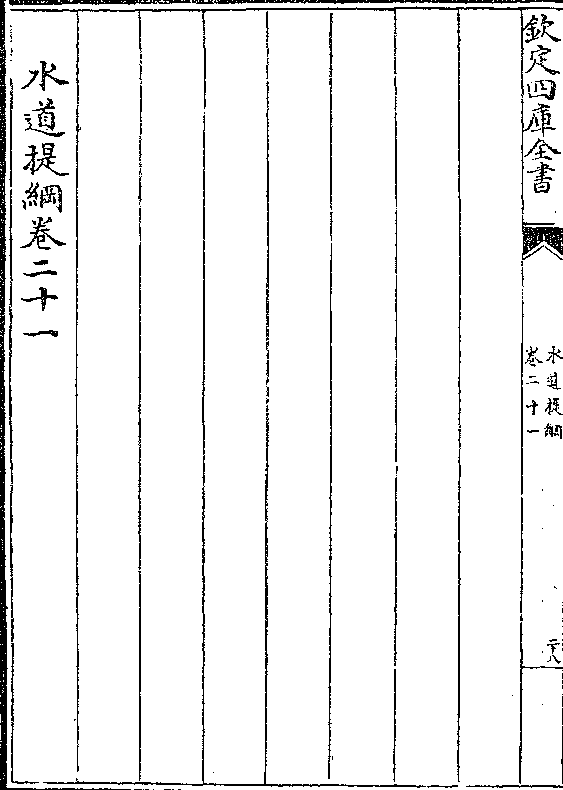 欽定四庫全書
水道提綱
卷二十一
二十八
水道提綱卷二十一